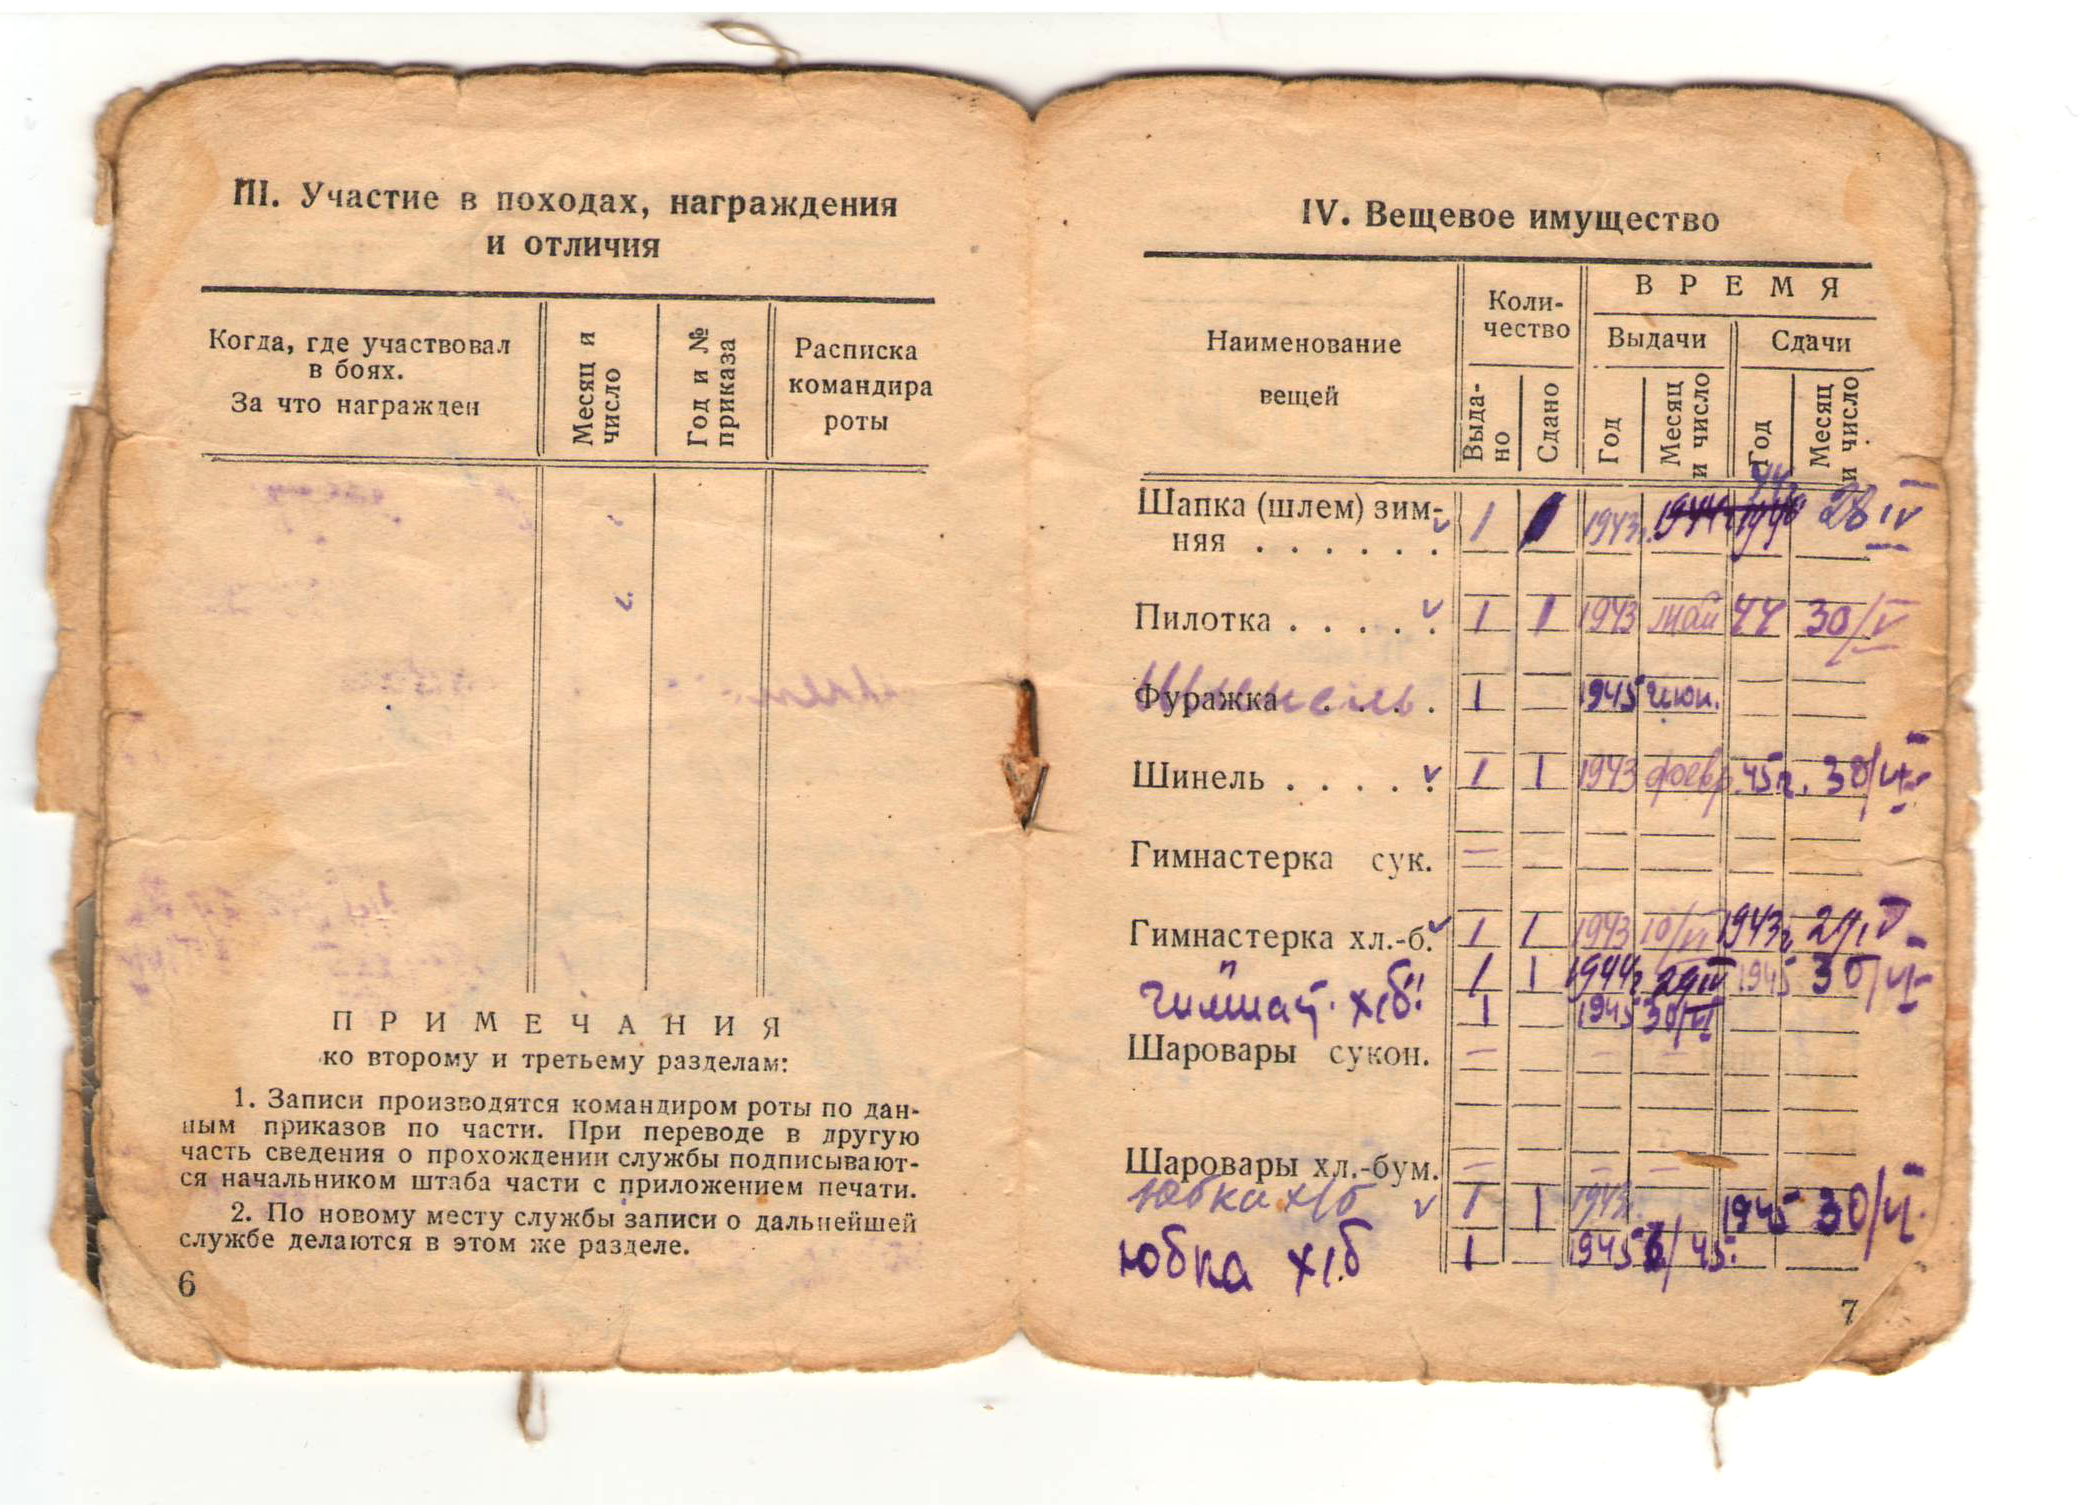 III. Участие в походах, награждения
и отличия
Когда, где участвовал
в боях.
За что награжден
Месяц и
число
Год и №
приказа
Расписка
командира
роты
ПРИМЕЧАНИЯ
ко второму и третьему разделам:
1. Записи производятся командиром роты по дан-
ным приказов по части. При переводе в другую
часть сведения о прохождении службы подписывают-
ся начальником штаба части с приложением печати.
2. По новому месту службы записи о дальнейшей
службе делаются в этом же разделе.
6
IV. Вещевое имущество
Наименование
вещей
Коли-
чество
ВРЕМЯ
Выдачи
Сдачи
Выда-
но
Сдано
Год
Месяц
и число
Год
Месяц
и число
44
Шапка (шлем) зим-
няя . . . . . . 1 1943г. 28 IV
Пилотка . . . . . 1 1 1943 май 44 30/V
Фуражка . . . . 1 1945 июн.
Шинель
Шинель . . . . . 1 1 1943 февр. 45г. 30/VI
Гимнастерка сук. —
Гимнастерка хл.-б. 1 1 1943 10/VI 1943г. 29 IV
гимнаст. х/б 1 1 1944г 29 IV 1945 30/VI
1 1945 30/VI
Шаровары сукон. —
Шаровары хл.-бум. —
юбка х/б 1 1 1943г. 1945 30/VI.
юбка х/б 1 1945 6/45.
7